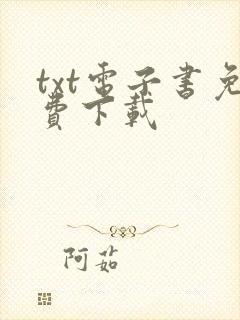 txt電子書免
費下載
阿茹